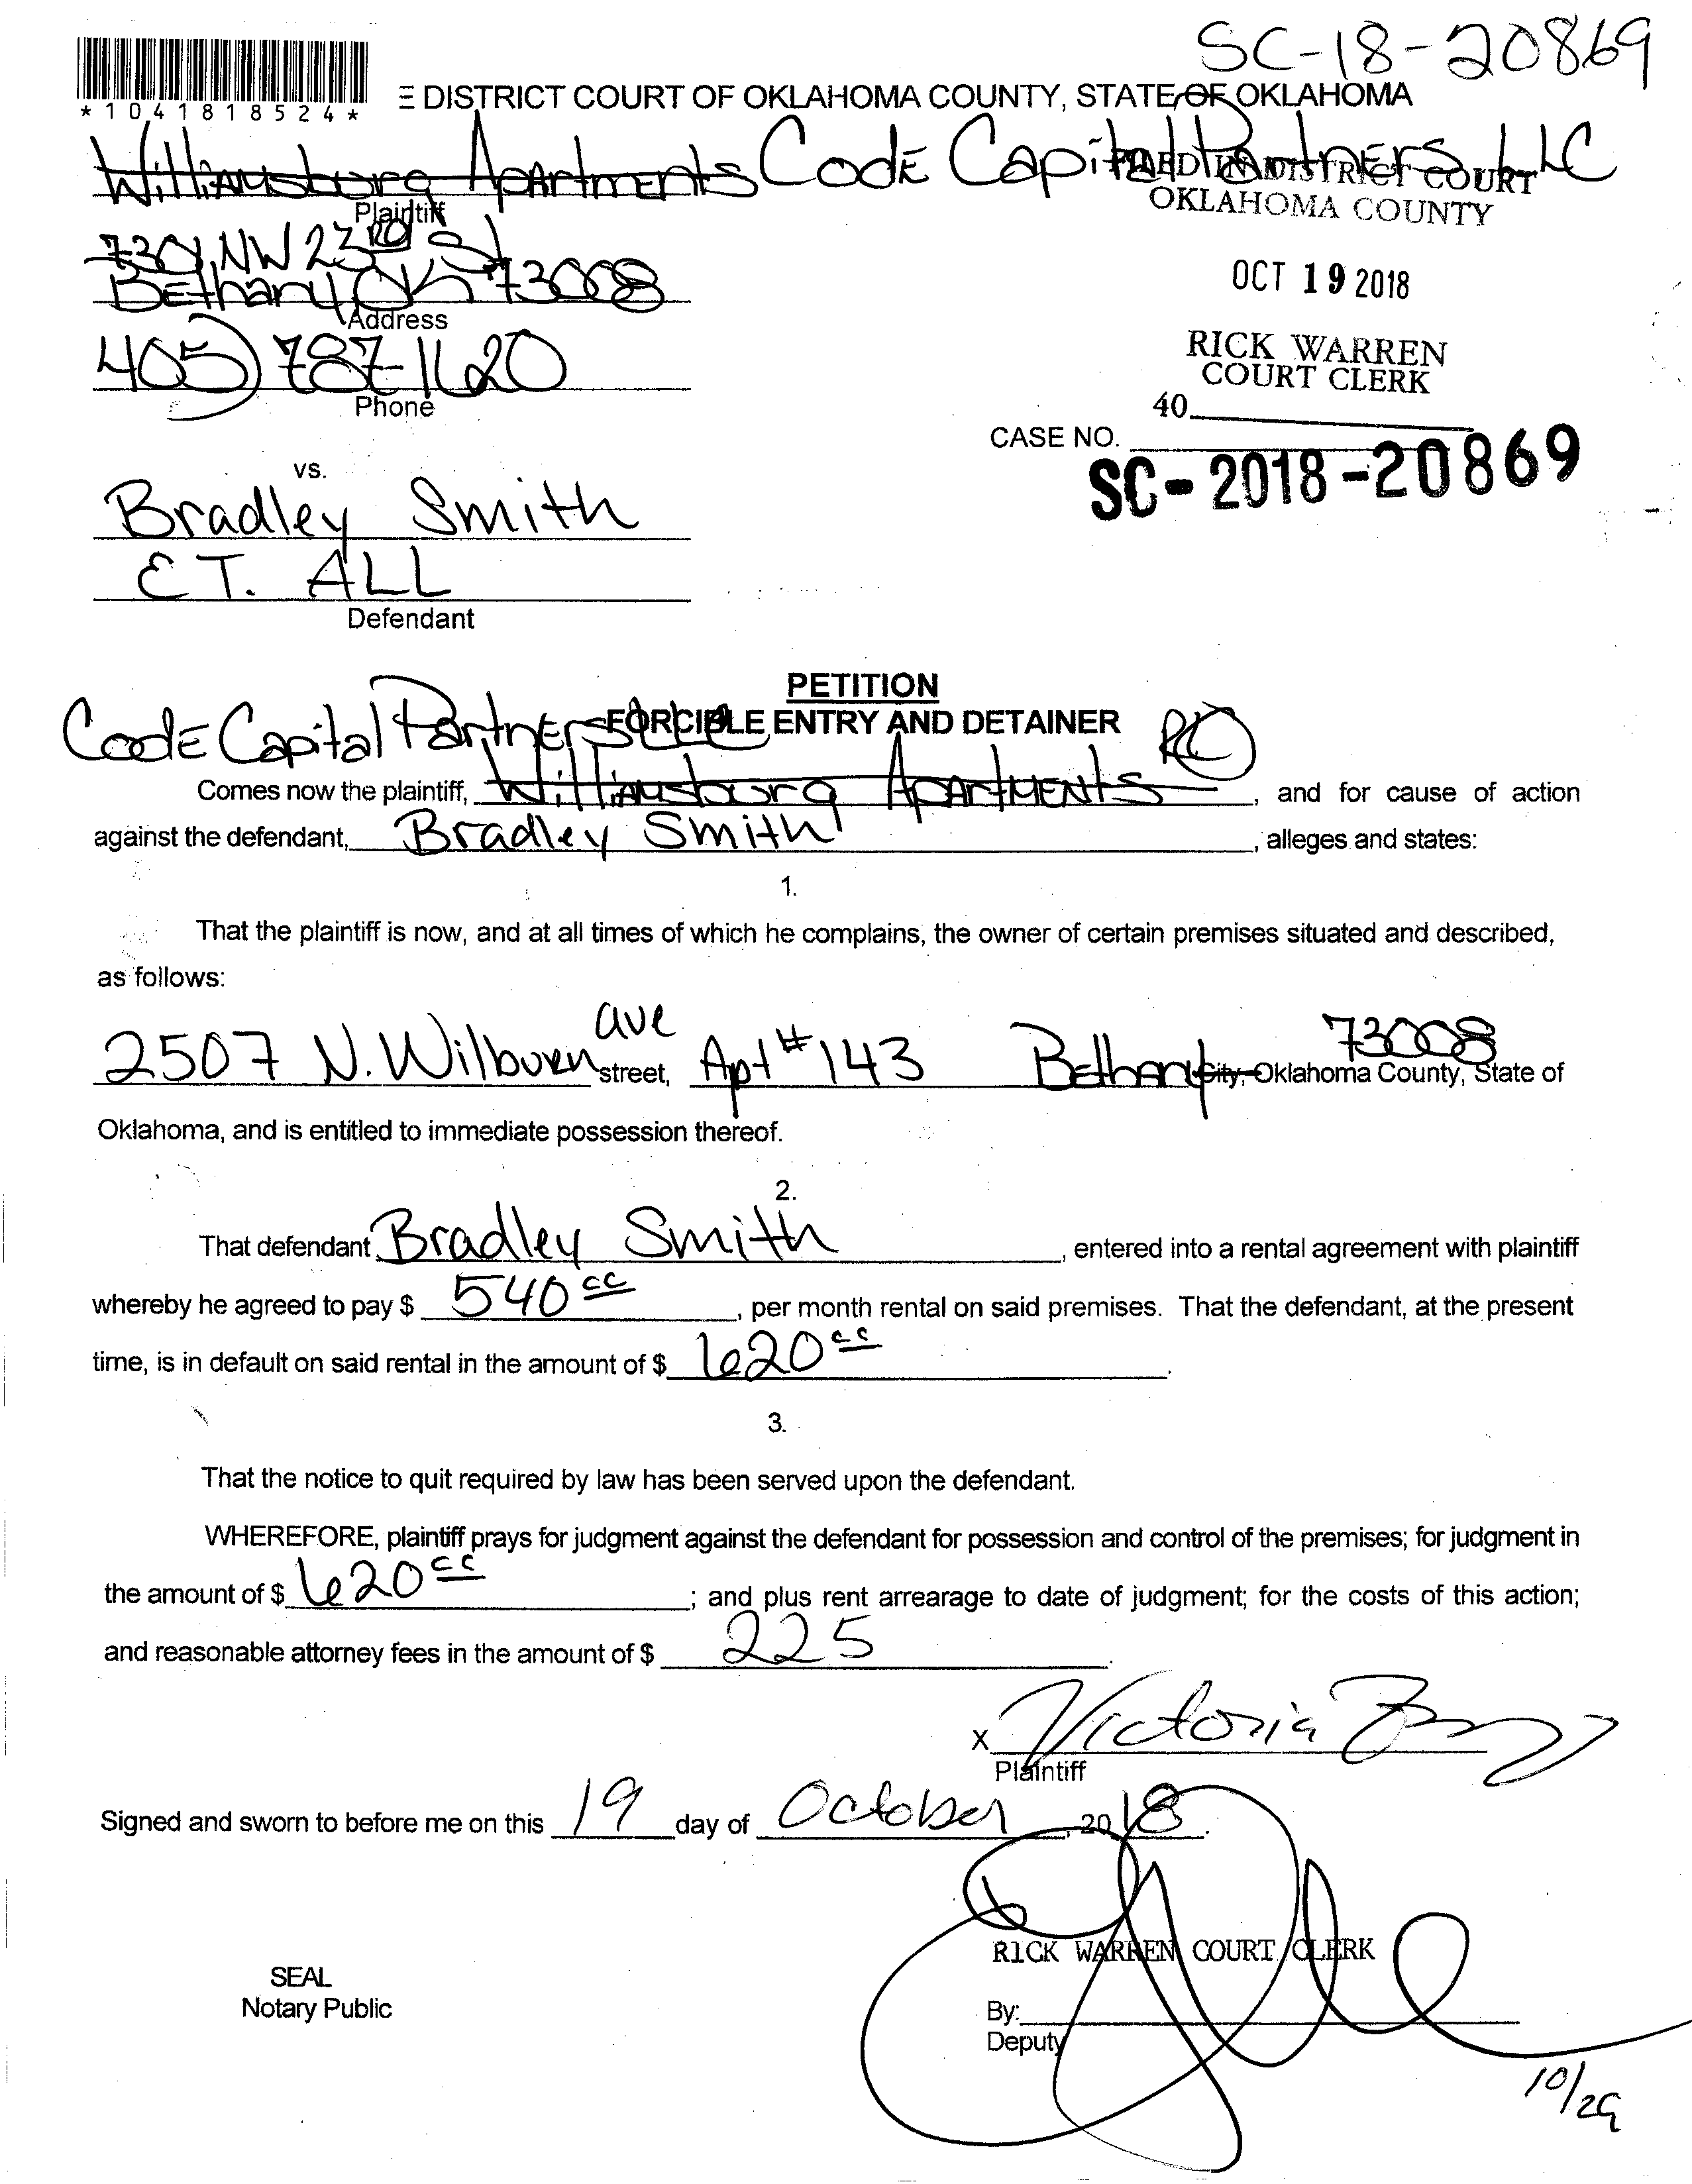 SC-18-20869
*1041818524*
E DISTRICT COURT OF OKLAHOMA COUNTY, STATE OF OKLAHOMA
Williamsburg Apartments Code Capital Partners LLC
FILED IN DISTRICT COURT
OKLAHOMA COUNTY
Plaintiff
7301 NW 23RD St
Bethany OK 73008
Address
OCT 19 2018
405) 787-1620
Phone
RICK WARREN
COURT CLERK
40
CASE NO.
SC-2018-20869
vs.
Bradley Smith
ET. ALL
Defendant
PETITION
FORCIBLE ENTRY AND DETAINER
Code Capital Partners LLC
Comes now the plaintiff, Williamsburg Apartments, and for cause of action
against the defendant, Bradley Smith, alleges and states:
1.
That the plaintiff is now, and at all times of which he complains, the owner of certain premises situated and described,
as follows:
2507 N. Wilburn ave street, Apt # 143 Bethany City, Oklahoma County, State of 73008
Oklahoma, and is entitled to immediate possession thereof.
2.
That defendant Bradley Smith, entered into a rental agreement with plaintiff
whereby he agreed to pay $ 540 cc, per month rental on said premises. That the defendant, at the present
time, is in default on said rental in the amount of $ 620 cc.
3.
That the notice to quit required by law has been served upon the defendant.
WHEREFORE, plaintiff prays for judgment against the defendant for possession and control of the premises; for judgment in
the amount of $ 620 cc; and plus rent arrearage to date of judgment; for the costs of this action;
and reasonable attorney fees in the amount of $ 225.
X Victoria
Plaintiff
Signed and sworn to before me on this 19 day of October, 2018.
RICK WARREN COURT CLERK
SEAL
Notary Public
By:
Deputy
10/29